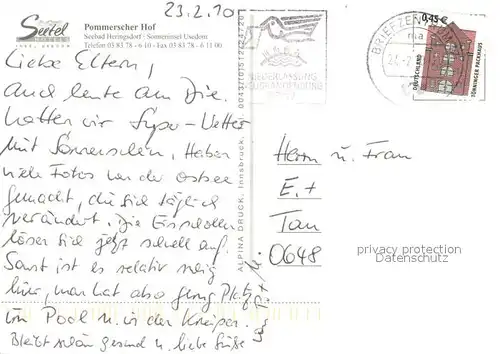 23.2.10
Seetel
HOTELS
INSEL USEDOM
Pommerscher Hof
Seebad Heringsdorf · Sonneninsel Usedom
Telefon 03 83 78 - 6 10 · Fax 03 83 78 - 6 11 00
Liebe Eltern,
auch heute am Die.
hatten wir Super-Wetter
mit Sonnenschein. Haben
viele Fotos von der Ostsee
gemacht, die sich täglich
verändert. Die Eisschollen
lösen sich jetzt schnell auf.
Sonst ist es relativ ruhig
hier, man hat also genug Platz
im Pool u. in der Kneipe.
Bleibt schön gesund u. liebe Grüße
ALPINA DRUCK, Innsbruck,
BRIEFZENTRUM
0,45 €
DEUTSCHLAND
TÖNNINGER PACKHAUS
Herrn u. Frau
E. +
Tau
0648
privacy protection
Datenschutz